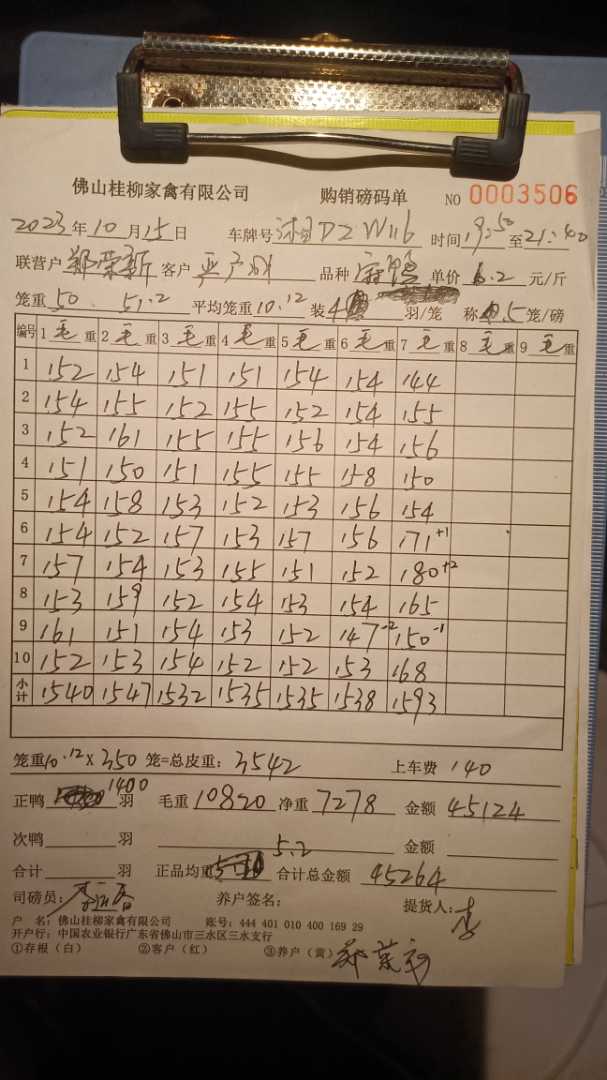 佛山桂柳家禽有限公司 购销磅码单 NO 0003506
2023年10月15日 车牌号 湘DZW116 时间19:50至21:40
联营户 郑荣新 客户 品种 单价 6.2 元/斤
笼重 50. 51.2 平均笼重 10.12 装 4 羽/笼 称 5 笼/磅
编号 1毛重 2毛重 3毛重 4毛重 5毛重 6毛重 7毛重 8毛重 9毛重
1 152 154 151 151 154 154 144
2 154 155 152 155 152 154 155
3 152 161 155 155 156 154 156
4 151 150 151 155 155 158 150
5 154 158 153 152 153 156 154
6 154 152 157 153 157 156 171+1
7 157 154 153 155 151 152 180+2
8 153 159 152 154 153 154 165
9 161 151 154 153 152 147-2 150-1
10 152 153 154 152 152 153 168
小计 1540 1547 1532 1535 1535 1538 1593
笼重10.12×350 笼=总皮重: 3542 上车费 140
正鸭 1400 羽 毛重 10820 净重 7278 金额 45124
次鸭 羽 金额
合计 羽 正品均重 5.2 合计总金额 45264
司磅员: 养户签名: 提货人: 李
户 名: 佛山桂柳家禽有限公司 账号: 444 401 010 400 169 29
开户行: 中国农业银行广东省佛山市三水区三水支行
①存根（白） ②客户（红） ③养户（黄） 郑荣新